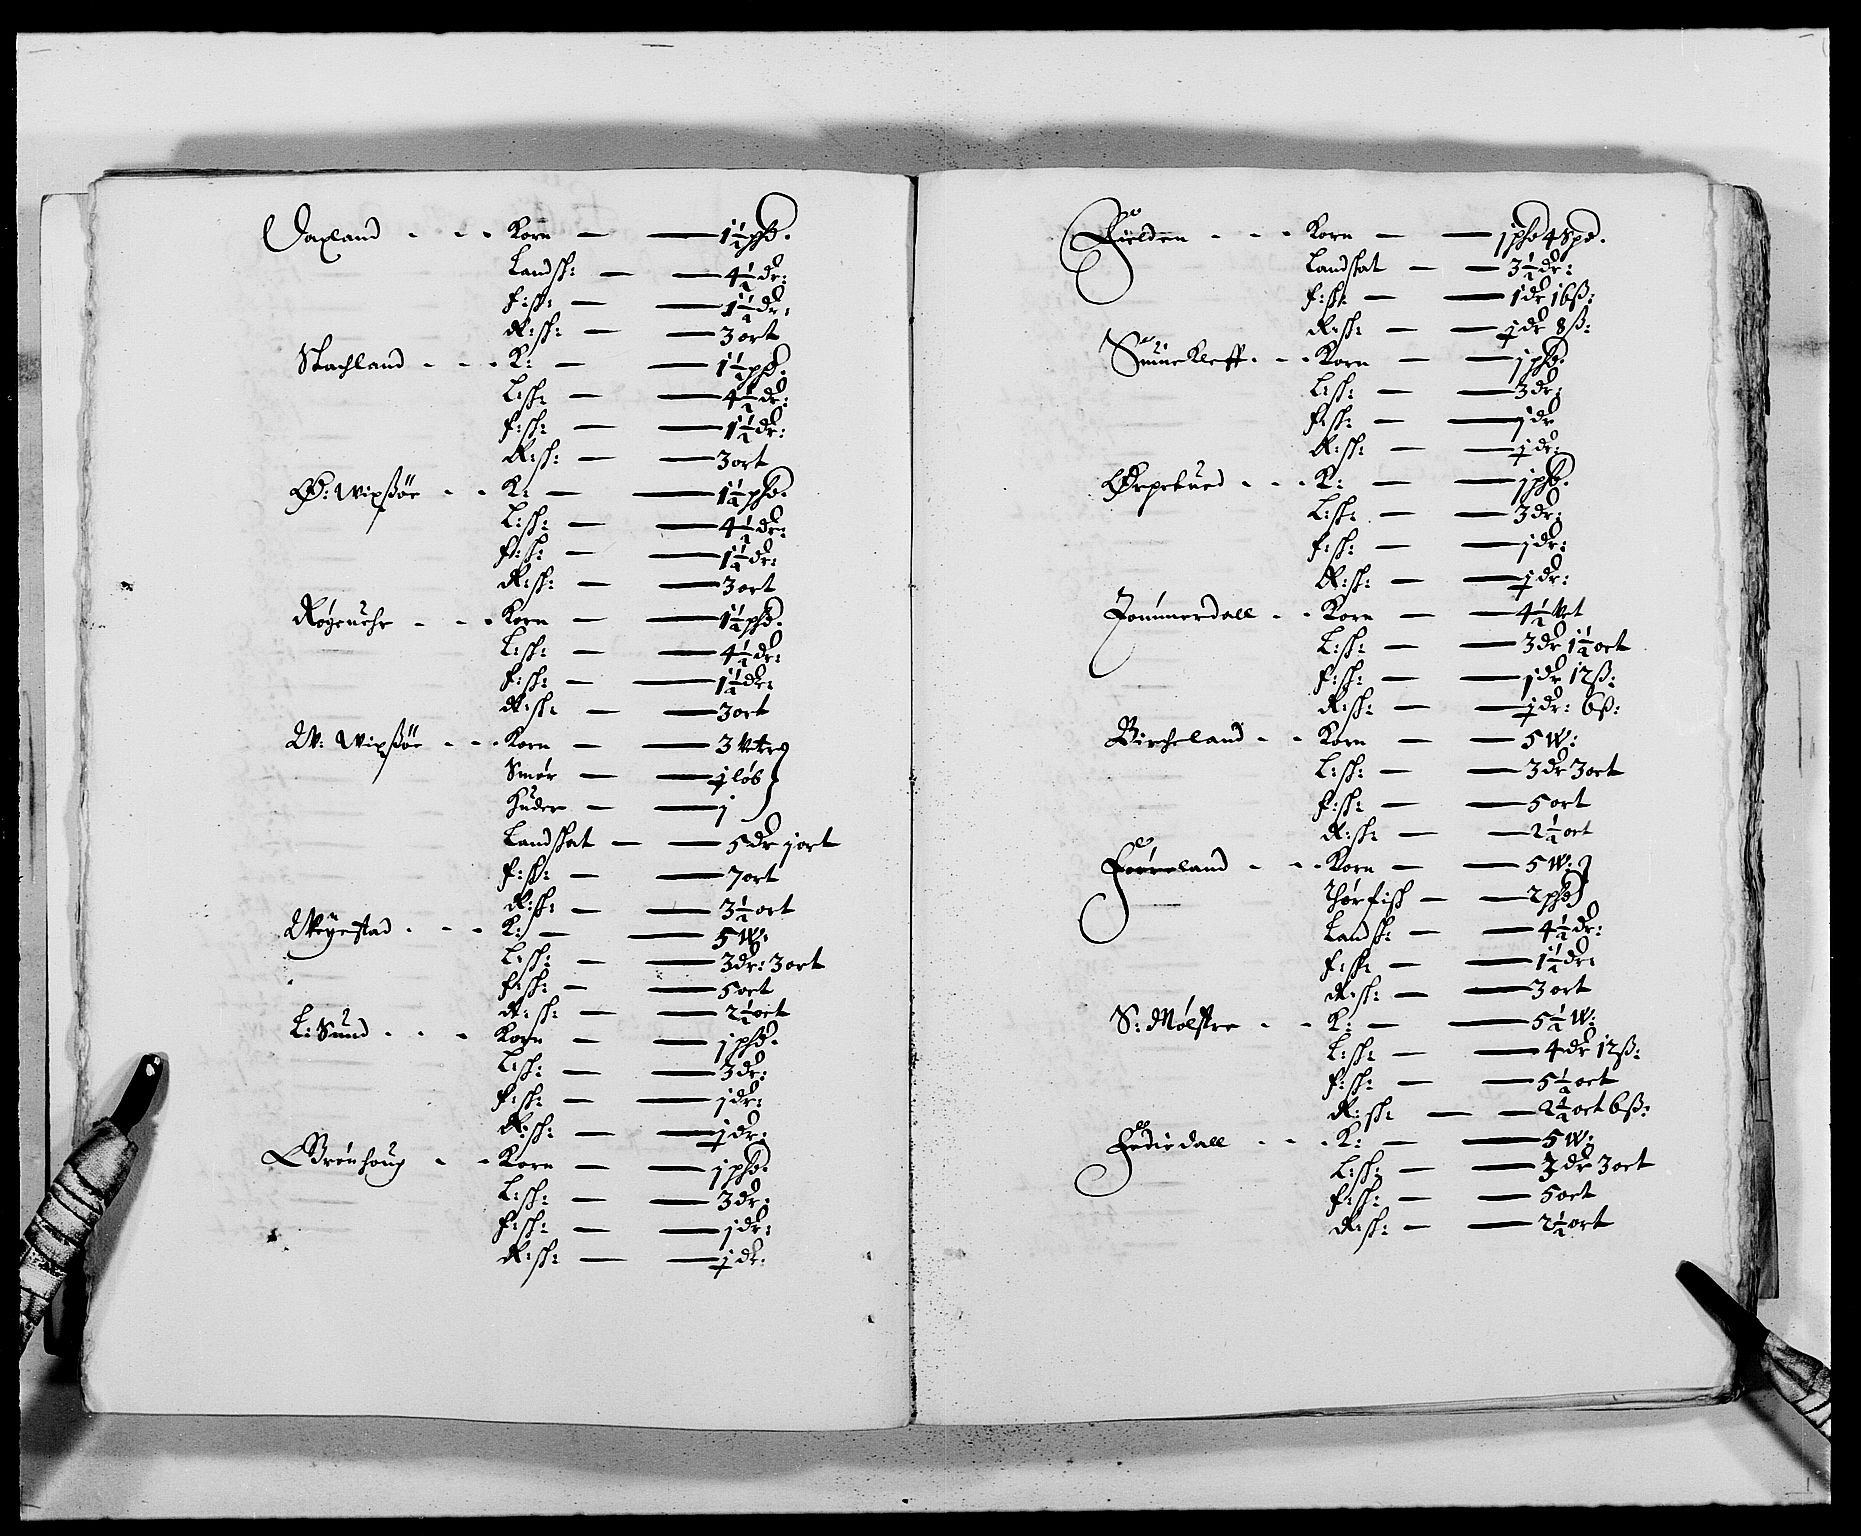 Oaxland - - - Korn — — 1½ phd.
Landsk: — — 4½ dr:
f: sk: — — 1½ dr:
R: sk: — — 3 ort
Stachland - - - K: — — 1½ phd.
L: sk: — — 4½ dr:
f: sk: — — 1½ dr:
R: sk: — — 3 ort
Ø: Wixßøe - - K: — — 1½ phd.
L: sk: — — 4½ dr:
f: sk: — — 1½ dr:
R: sk: — — 3 ort
Røgeuehr - - - Korn — — 1½ phd.
L: sk: — — 4½ dr:
f: sk: — — 1½ dr:
R: sk: — — 3 ort
W: Wixßøe - - - Korn — — 3 Vetr
Smør — — 1 løb
Huder — — 1
Landskat — — 5 dr 1 ort
f: sk: — — 7 ort
R: sk: — — 3½ ort
Weyestad - - - K: — — 5 W:
L: sk: — — 3 dr: 3 ort
f: sk: — — 5 ort
R: sk: — — 2½ ort
L: Sund - - - Korn — — 1 phd.
L: sk: — — 3 dr:
f: sk: — — 1 dr:
R: sk: — — ½ dr:
Grønhoug - - Korn — — 1 phd.
L: sk: — — 3 dr:
f: sk: — — 1 dr:
R: sk: — — ½ dr:
Fielden - - - Korn — — 1 phd 4 Spd.
Landskat — — 3½ dr:
f: sk: — — 1 dr 16 ß:
R: sk: — — ½ dr 8 ß:
Sunekleff - - - Korn — — 1 phd.
L: sk: — — 3 dr:
f: sk: — — 1 dr
R: sk: — — ½ dr:
Ørpetued - - - K: — — 1 phd.
L: sk: — — 3 dr:
f: sk: — — 1 dr:
R: sk: — — ½ dr:
Jommerdall - - Korn — — 4½ Vet
L: sk: — — 3 dr 1½ ort
f: sk: — — 1 dr 12 ß:
R: sk: — — ½ dr: 6 ß:
Bircheland - - Korn — — 5 W:
L: sk: — — 3 dr 3 ort
f: sk: — — 5 ort
R: sk: — — 2½ ort
Førreland - - - Korn — — 5 W:
Thørfisk — — 2 phd
Landsk: — — 4½ dr:
f: sk: — — 1½ dr:
R: sk: — — 3 ort
S: Mølstre - - K: — — 5½ W:
L: sk: — — 4 dr 12 ß:
f: sk: — — 5½ ort
R: sk: — — 2½ ort 6 ß:
Fediedall - - - K: — — 5 W:
L: sk: — — 3 dr 3 ort
f: sk: — — 5 ort
R: sk: — — 2½ ort